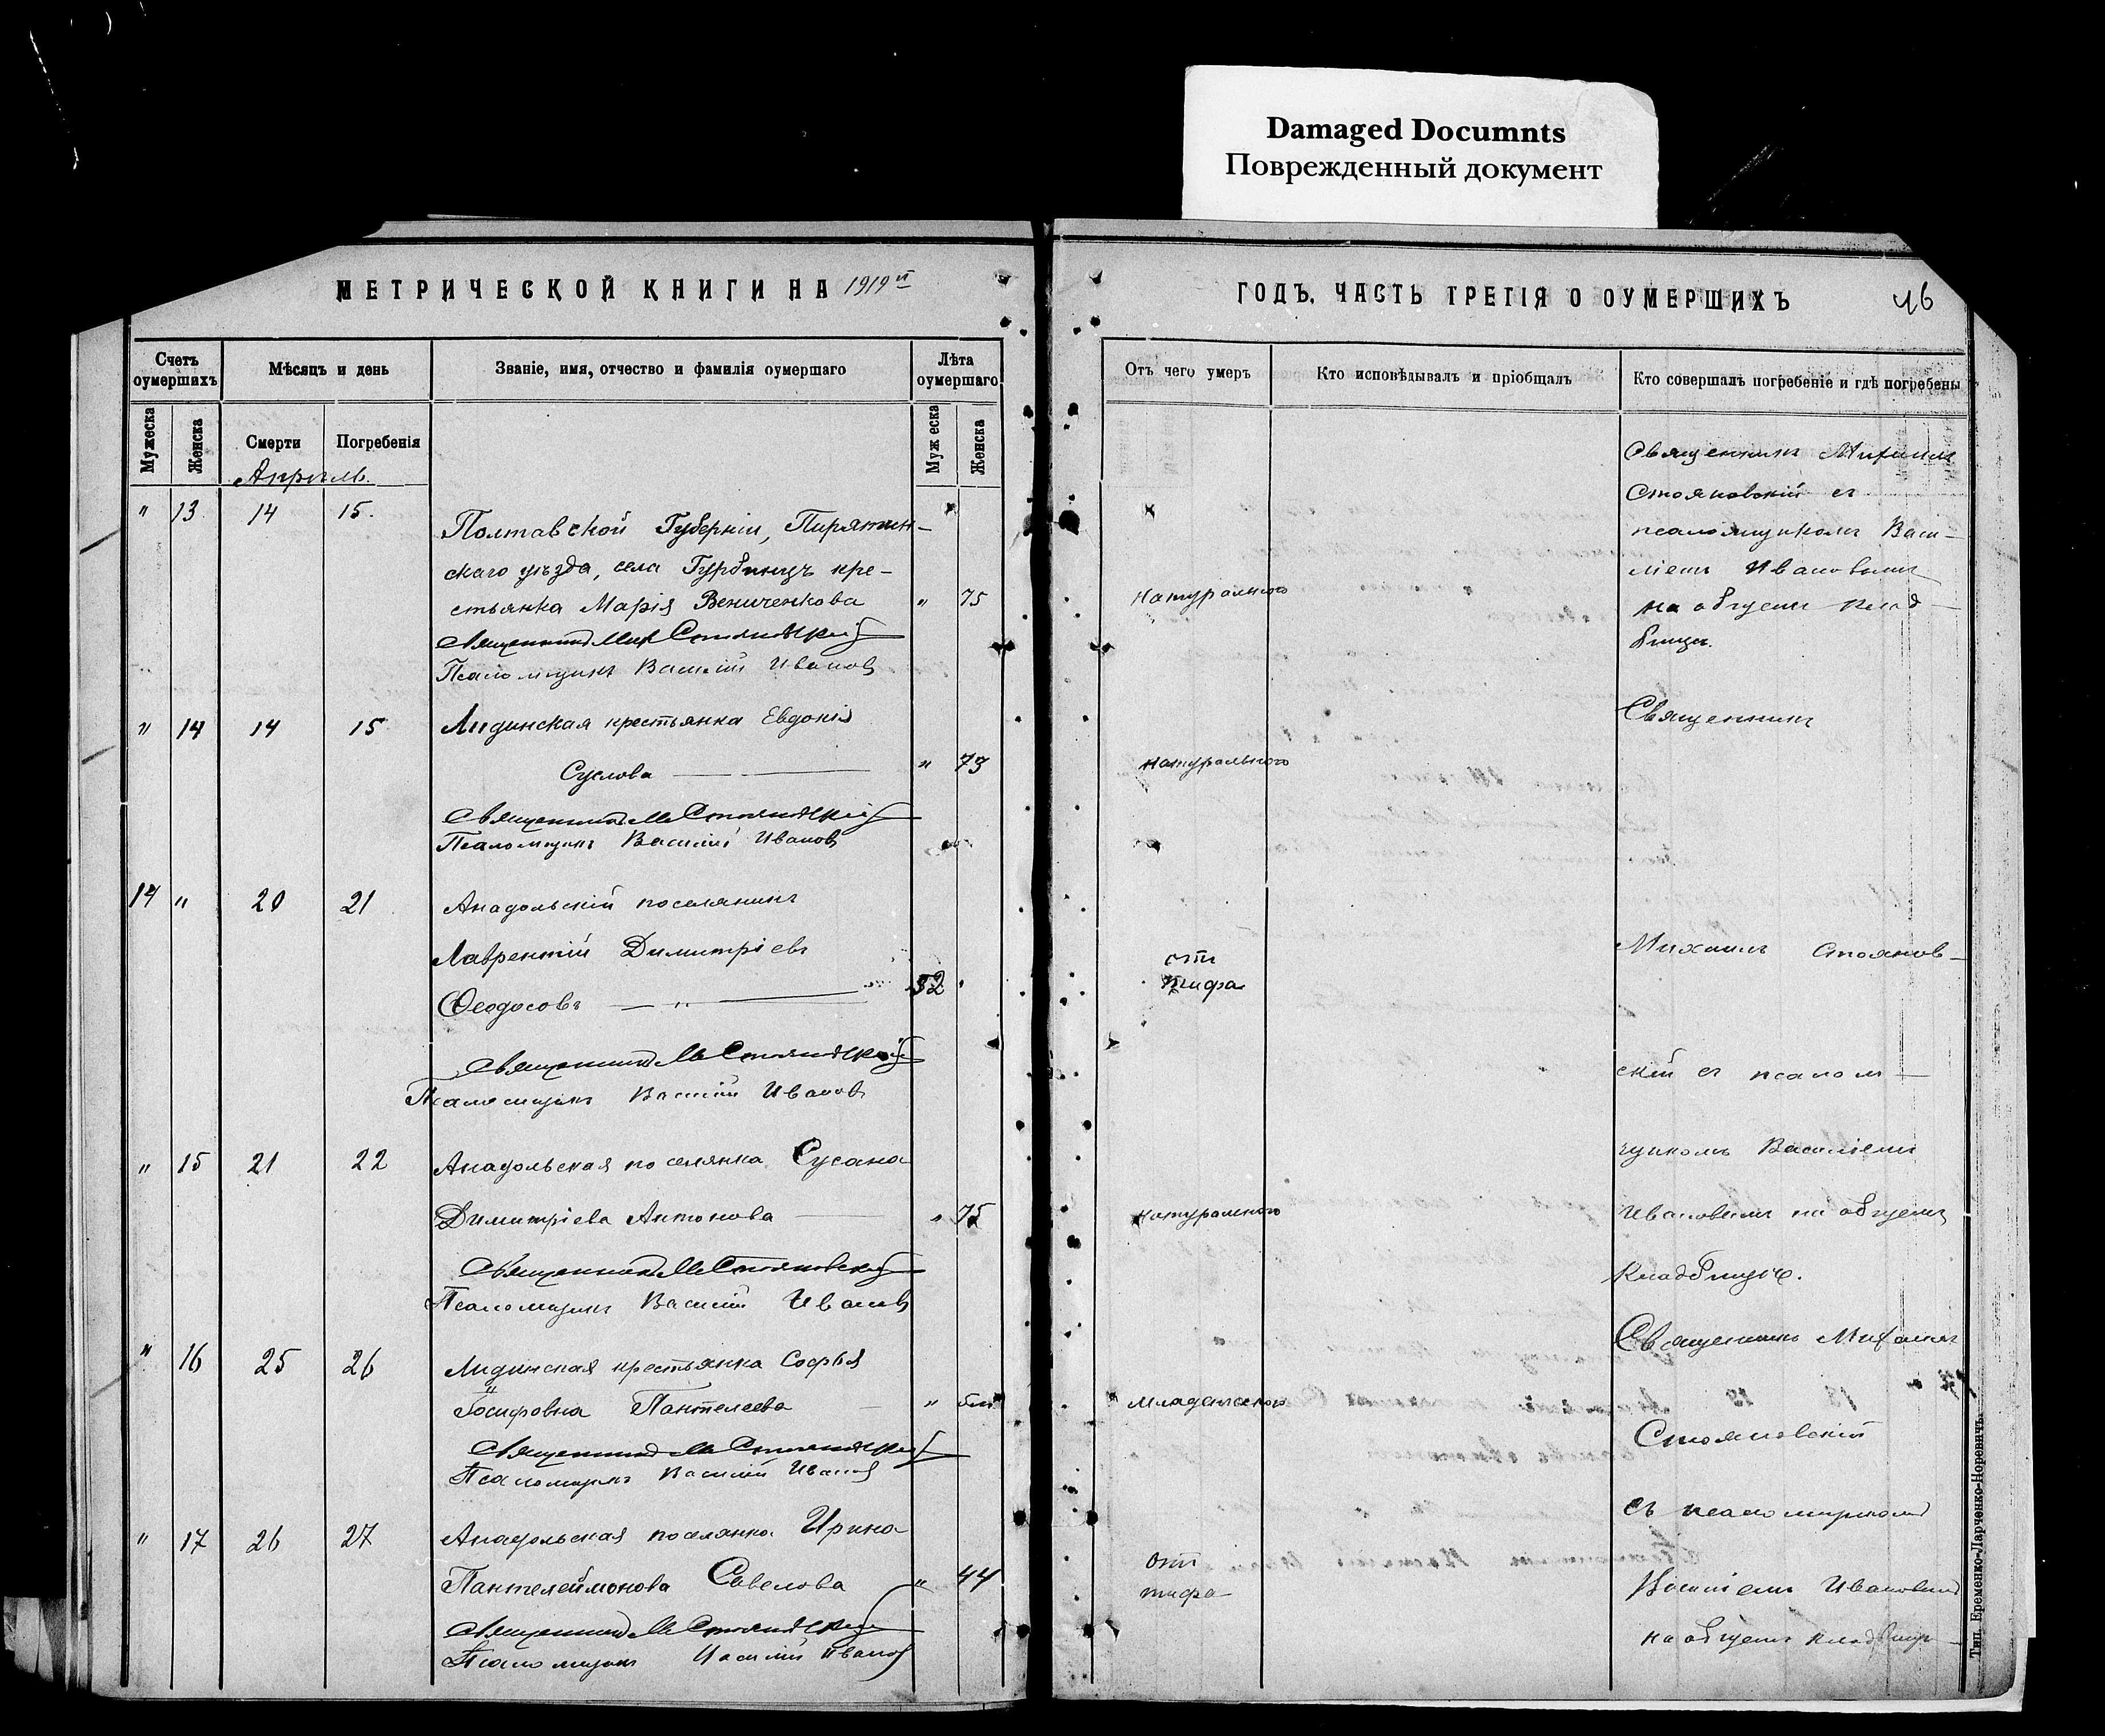 Damaged Documnts
Поврежденный документ
МЕТРИЧЕСКОЙ КНИГИ НА 1919 й
ГОДЪ, ЧАСТЬ ТРЕТІЯ О ОУМЕРШИХЪ
46
Счетъ оумершихъ
Мѣсяцъ и день
Званіе, имя, отчество и фамилія оумершаго
Лѣта оумершаго
Отъ чего умеръ
Кто исповѣдывалъ и пріобщалъ
Кто совершалъ погребеніе и гдѣ погребены
Мужеска
Женска
Смерти
Погребенія
Мужеска
Женска
Апрѣль.
" 13 14 15.
Полтавской Губерніи, Пирятин-
скаго уѣзда, села Гурбинцъ кре-
стьянка Марія Вениченкова " 75
натуральнаго
Священникъ Мих Стояновскій
Псаломщикъ Василій Ивановъ
Священникъ Михаилъ
Стояновскій съ
псаломщикомъ Васи-
ліемъ Ивановымъ
на общемъ клад-
бищѣ.
" 14 14 15
Лидинская крестьянка Евдокія
Суслова " 73
натуральнаго
Священникъ М Стояновскій
Псаломщикъ Василій Ивановъ
Священникъ
14 " 20 21
Анадольскій поселянинъ
Лаврентій Димитріевъ
Ѳеодосовъ " 52
отъ
тифа
Священникъ М Стояновскій
Псаломщикъ Василій Ивановъ
Михаилъ Стоянов-
скій съ псалом-
" 15 21 22
Анадольская поселянка Сусана
Димитріева Антонова " 75
натуральнаго
Священникъ М Стояновскій
Псаломщикъ Василій Ивановъ
щикомъ Василіемъ
Ивановымъ на общемъ
кладбищѣ.
" 16 25 26
Лидинская крестьянка Софья
Іосифовна Пантелеева "
младенческаго
Священникъ М Стояновскій
Псаломщикъ Василій Ивановъ
Священникъ Михаилъ
Стояновскій
" 17 26 27
Анадольская поселянка Ирина
Пантелеймонова Савелова " 44
отъ
тифа
Священникъ М Стояновскій
Псаломщикъ Василій Ивановъ
съ псаломщикомъ
Василіемъ Ивановымъ
на общемъ кладбищѣ
Тип. Еременко-Ларченко-Норевичъ.